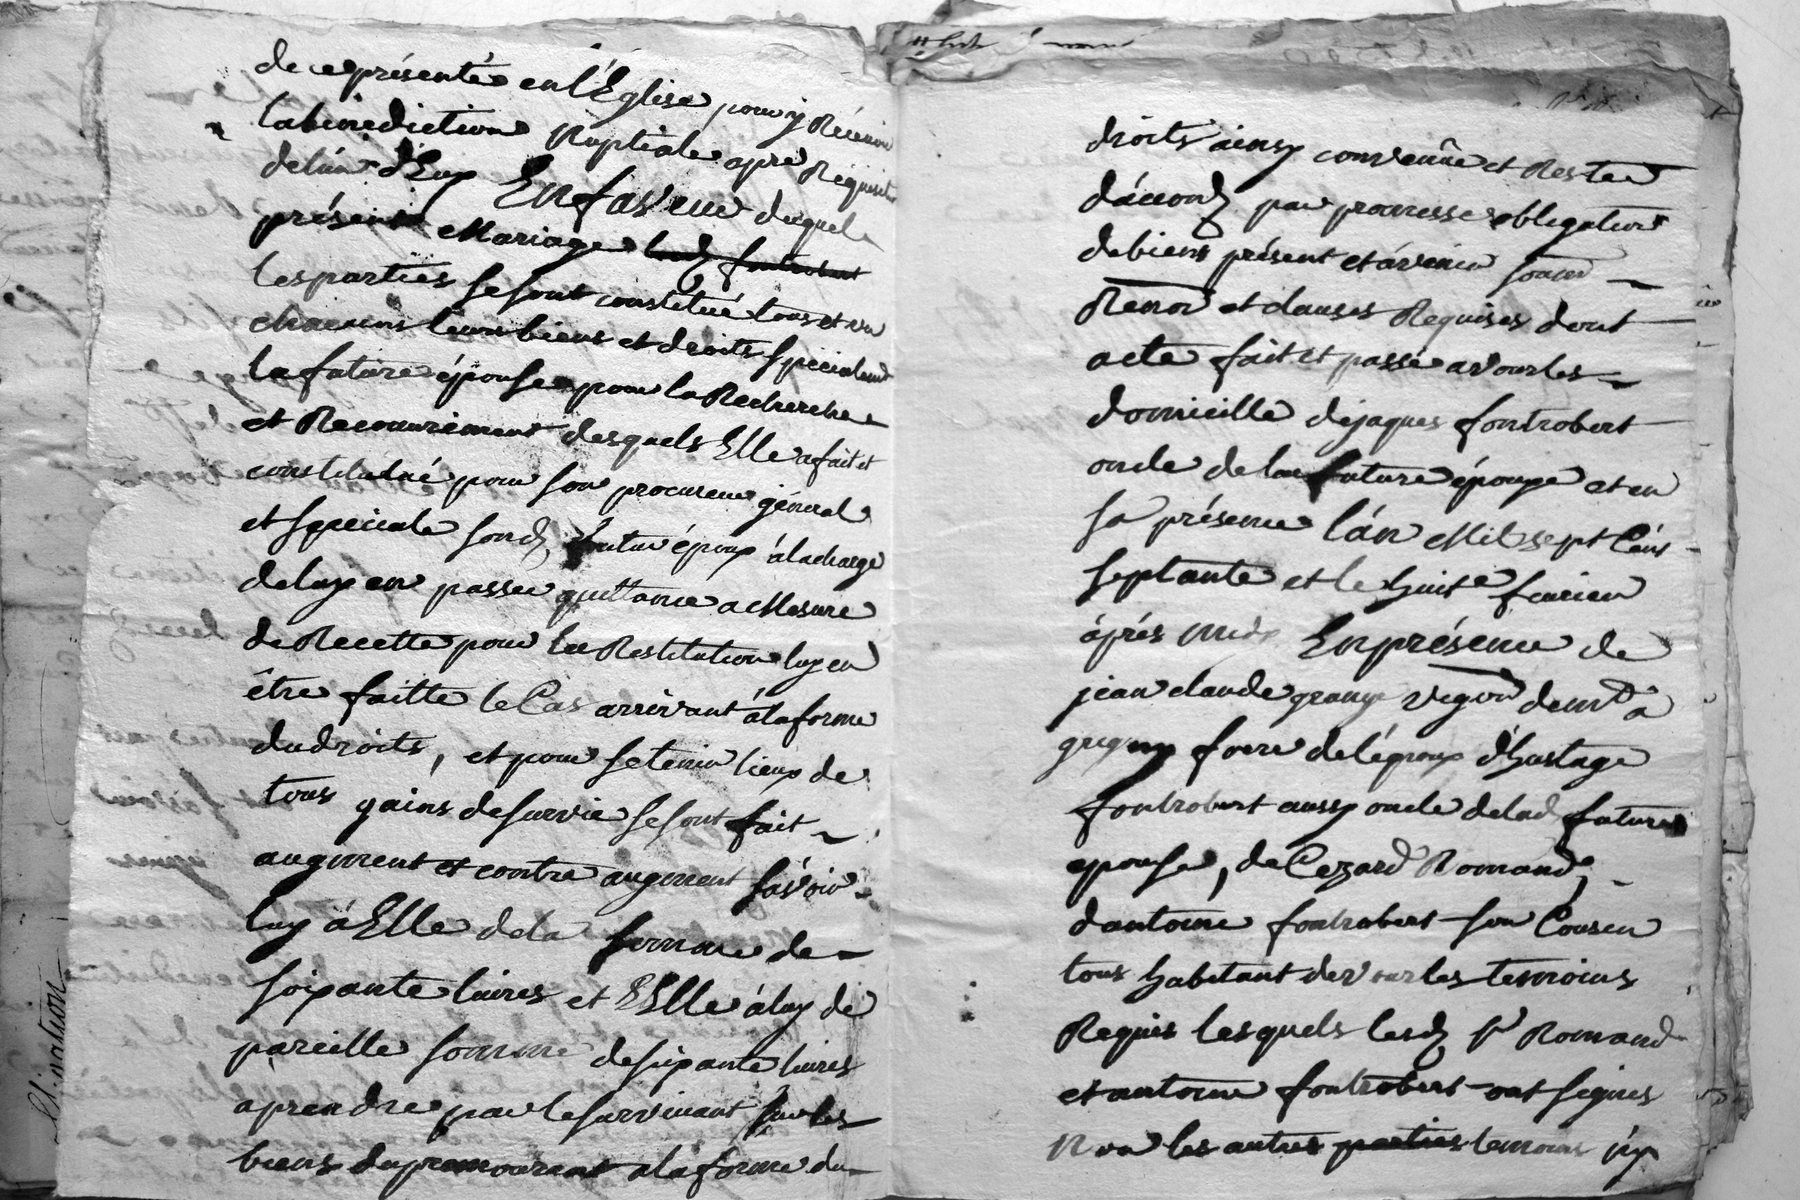 de ce présenté en l'Eglise pour y Récévoir
la bénédiction Nuptiale apre Réquisit
de l'un d'Eux En faveur duquel
présent Mariage lesd fontrobert
les parties se sont constitué tous et un
chacuns leurs biens et droits spécialem
la future épouse pour la Recherche
et Recouvrement desquels Elle a fait et
constitué pour son procureur général
et spéciale sond futur époux à la charge
de luy en passer quittance a Mesure
de Recette pour la Restitution luy en
être faitte le Cas arrivant à la forme
du droits, et pour se tenir lieux de
tous gains de survie se sont fait
augment et contre augment sávoir
luy à Elle de la somme de
soixante livres et Elle à luy de
pareille somme de sixante livres
a prendre par le survivant sur les
biens du premourant a la forme du
droits ainsy convenûe et Rester
d'accord par promesse obligation
de biens présent et avenir soum
Renon et clauses Requises dont
acte fait et passé a vourles
domicille de jaques fontrobert
oncle de la future épouse et en
sa présence l'án Mil sept Cens
septante et le huit e fevrier
áprés midy En présence de
jean claude grange vigon de md a
grigny frere de l'époux d'hustage
fontrobert aussy oncle de lad future
epouse, de Cezard Romand,
d'antoine fontrobert son Cousin
tous habitant de vourles temoins
Requis lesquels lesd sr Romand
et antoine fontrobert ont signés
Non les autres parties temoins ny